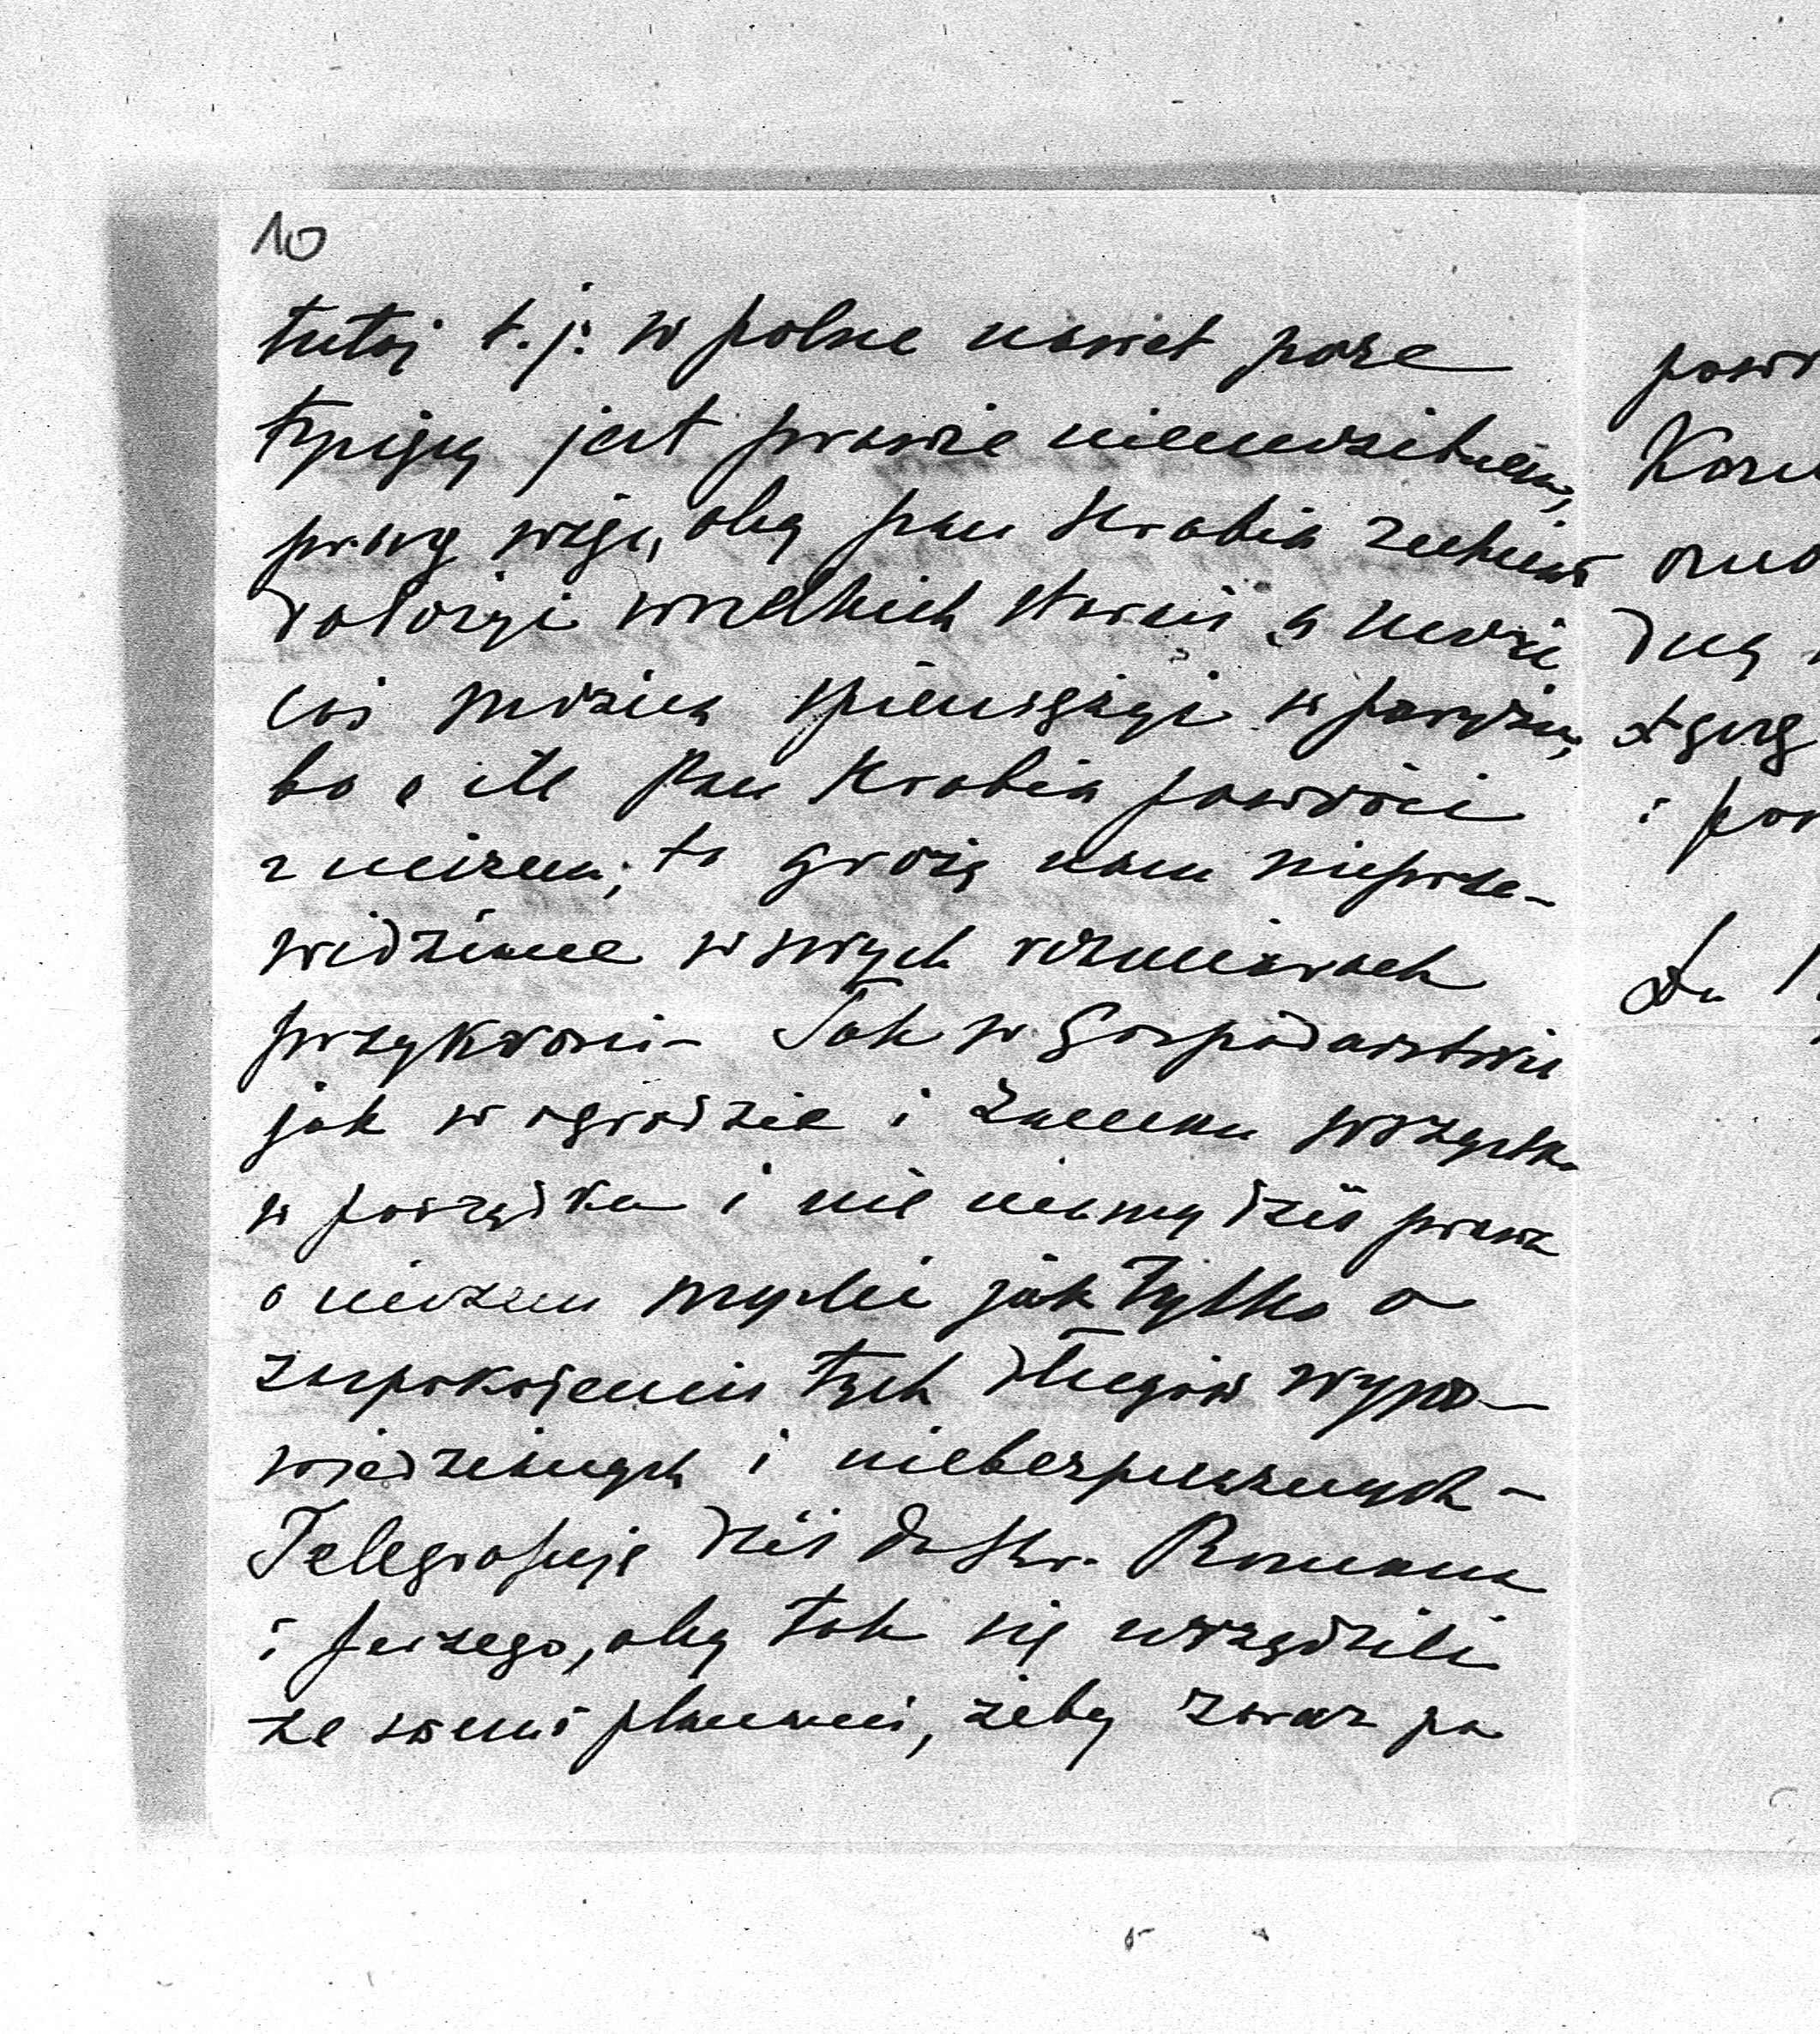 10
tutaj t.j. w polsce nawet parę
tysięcy jest prawie niemożebnem,
proszę więc, aby pan Hrabia zechciał
dołożyć wszelkich starań a może
coś można spieniężyć w paryżu,
bo o ile Pan Hrabia powróci
z niczem, to grożą nam nieprze-
widziane w swych rozmiarach
przykrości - Tak w Gospodarstwie
jak w ogrodzie i Zamku wszystko
w porządku i nie mamy dziś prawie
o niczem myśleć jak tylko o
zaspokojeniu tych długów wypo-
wiedzianych i niebezpiecznych -
Telegrafuję dziś do Hr. Romana
i Jerzego, aby tak się urządzili
ze swemi planami, żeby zaraz po
i